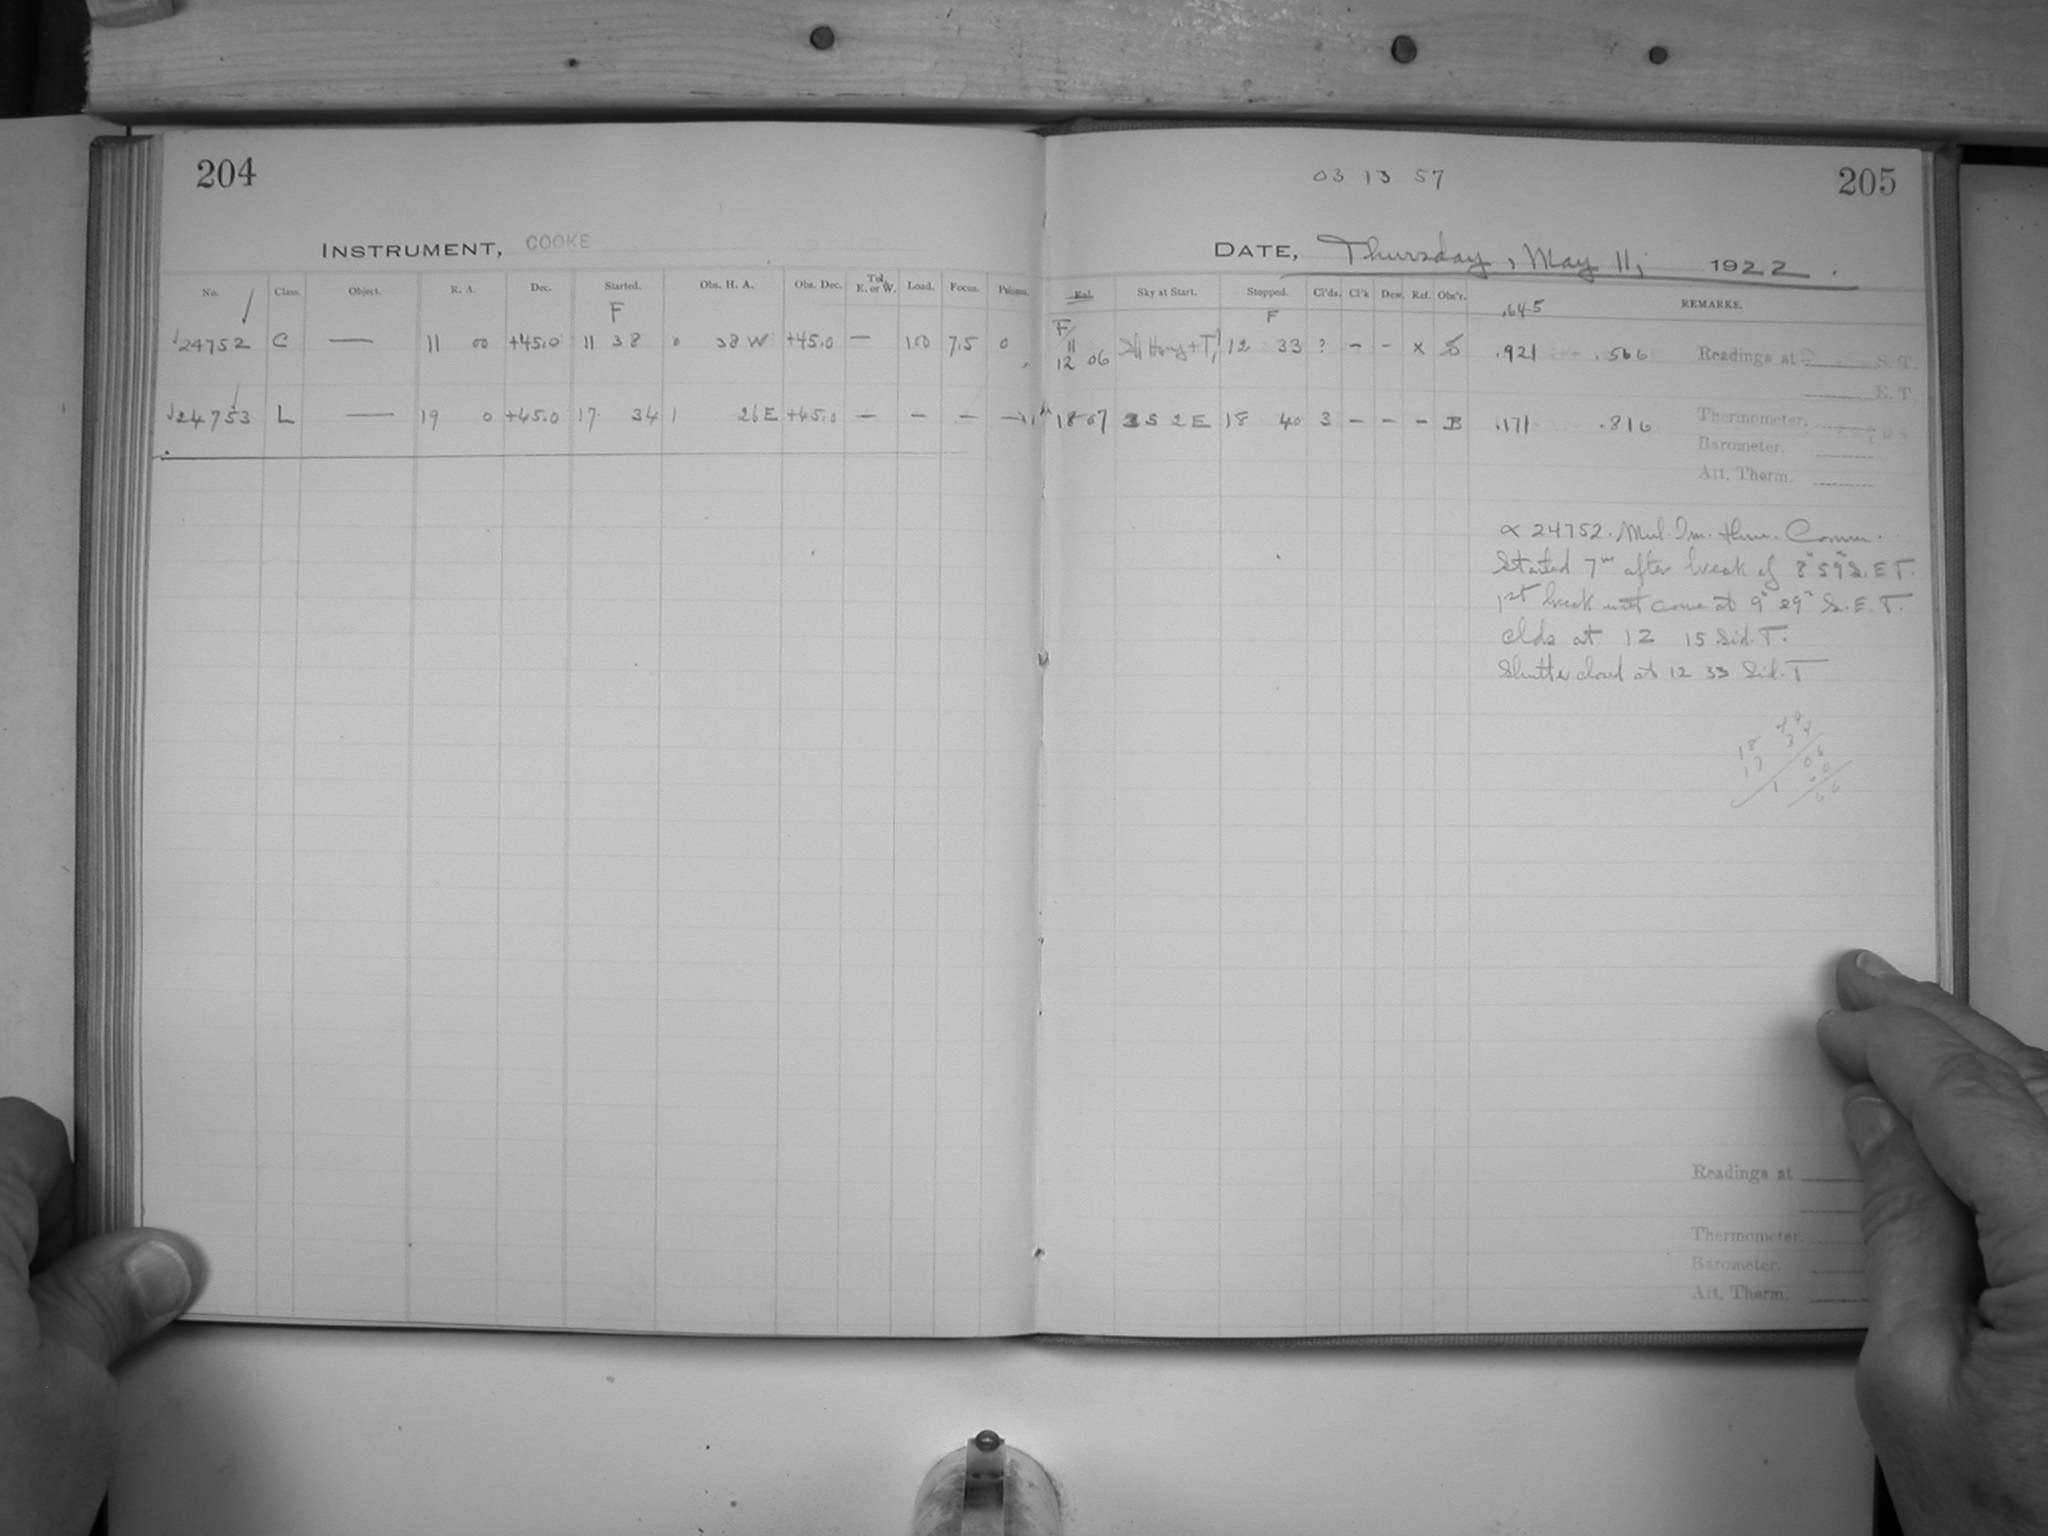 204
INSTRUMENT, COOKE
No. Class. Object. R. A. Dec. Started. Obs. H. A. Obs. Dec. Tel. E. or W. Load. Focus. Prisms.
F
24752 C — 11 00 +45.0 11 38 0 38 W +45.0 — 100 7.5 0
24753 L — 19 0 +45.0 17 34 1 26 E +45.0 — — — —
03 13 57
205
DATE, Thursday, May 11, 1922.
Sky at Start. Stopped. Cl'ds. Cl'k Dew. Ref. Obs'r. REMARKS.
F F .645
11
12 06 12 33 ? – – x S .921 .566 Readings at S. T.
E. T.
18 07 S 2 E 18 40 3 – – – B .171 .816 Thermometer.
Barometer.
Att, Therm.
α 24752. Mul. Im. thru. Comm.
Started 7m after break of 8h 59m S. E T.
1st break not come at 9h 29m S. E. T.
clds at 12 15 Sid. T.
Shutter closed at 12 33 Sid. T
18
17 34
1 06
60
66
Readings at
Thermometer.
Barometer.
Att, Therm.